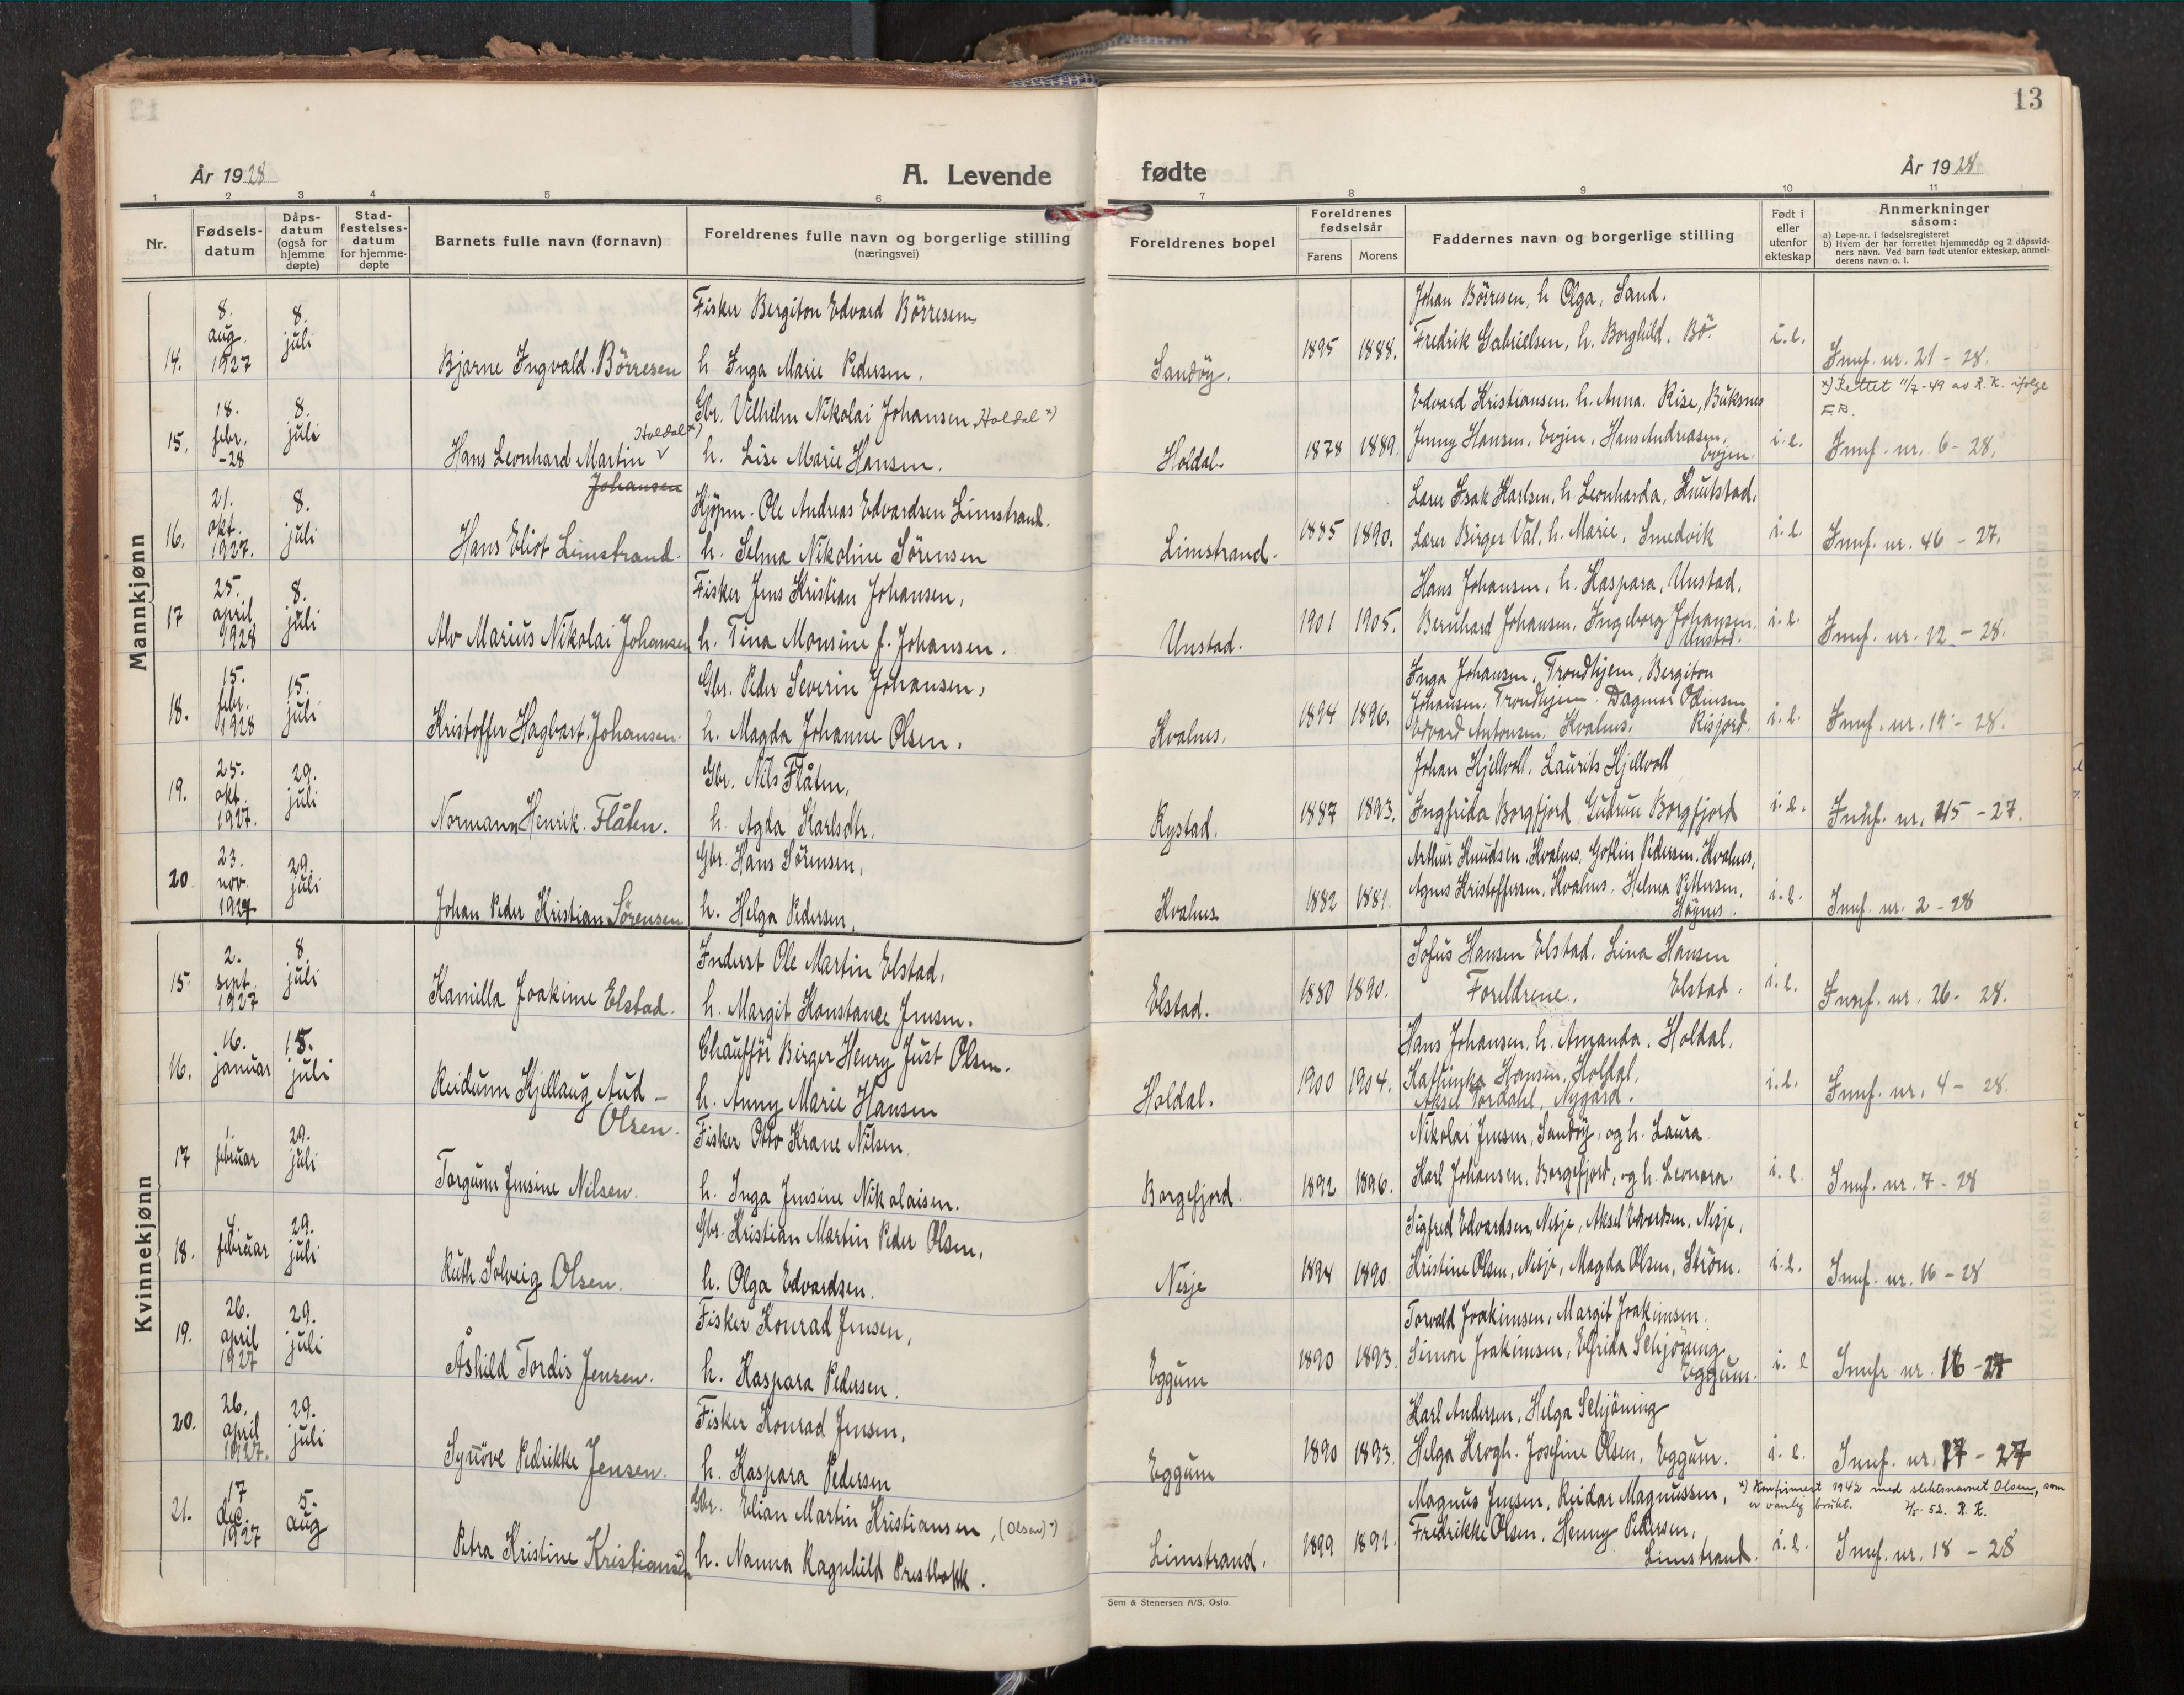 13
År 1928
A. Levende fødte
År 1928
1 2 3 4 5 6 7 8 9 10 11
Nr.
Fødsels-datum
Dåps-datum (også for hjemme døpte)
Stad-festelses-datum for hjemme-døpte
Barnets fulle navn (fornavn)
Foreldrenes fulle navn og borgerlige stilling (næringsvei)
Foreldrenes bopel
Foreldrenes fødselsår
Farens Morens
Faddernes navn og borgerlige stilling
Født i eller utenfor ekteskap
Anmerkninger såsom:
a) Løpe-nr. i fødselsregisteret
b) Hvem der har forrettet hjemmedåp og 2 dåpsvid-
ners navn. Ved barn født utenfor ekteskap, anmel-
derens navn o. l.
Mannkjønn
14. 8. aug. 1927 8. juli Bjarne Ingvald Börresen
Fisker Bergiton Edvard Börresen,
h. Inga Marie Pedersen.
Sandöy. 1895 1888.
Johan Börresen, h. Olga, Sand.
Fredrik Gabrielsen, h. Borghild, Bö.
i.e. Innf. nr. 21 - 28.
x) Rettet 11/7-49 av R.K. ifølge
F.B.
15. 18. febr. -28 8. juli Hans Leonhard Martin Holdal x)
Johansen
Gbr. Vilhelm Nikolai Johansen, Holdal x)
h. Lise Marie Hansen.
Holdal. 1878 1889.
Edvard Kristiansen. h. Anna. Rise, Buksnes
Jenny Hansen, Evjen, Hans Andreasen,
Evjen.
i.e. Innf. nr. 6 - 28.
16. 21. okt. 1927. 8. juli Hans Eliot Limstrand.
Kjöpm. Ole Andreas Edvardsen Limstrand.
h. Selma Nikoline Sörensen
Limstrand. 1885 1890.
Lærer Isak Karlsen, h. Leonharda, Knutstad.
Lærer Birger Val. h. Marie, Smedvik
i.e. Innf. nr. 46 - 27.
17 25. april 1928 8. juli Alv Marius Nikolai Johansen
Fisker Jens Kristian Johansen,
h. Tina Monsine f. Johansen.
Unstad. 1901 1905.
Hans Johansen, h. Kaspara, Unstad.
Bernhard Johansen, Ingeborg Johansen,
Unstad.
i.e. Innf. nr. 12 - 28.
18. 15. febr. 1928 15. juli Kristoffer Hagbart Johansen.
Gbr. Peder Severin Johansen,
h. Magda Johanne Olsen.
Kvalnes. 1894 1896.
Inga Johansen, Trondhjem, Bergiton
Johansen, Trondhjem. Dagmar Odinsen
Edvard Antonsen, Kvalnes. Risjord.
i.e. Innf. nr. 19 - 28.
19. 25. okt. 1927. 29. juli Normann Henrik. Flåten.
Gbr. Nils Flåten,
h. Agda Karlsdtr.
Rystad. 1887 1893.
Johan Hjellvoll, Laurits Hjellvoll
Ingfrida Borgfjord Gudrun Borgfjord
i.e. Innf. nr. 45 - 27.
20 23. nov. 1927 29. juli Johan Peder Kristian Sörensen
Gbr. Hans Sörensen,
h. Helga Pedersen,
Kvalnes 1882 1881.
Arthur Knudsen, Kvalnes, Gotlin Pedersen, Kvalnes,
Agnes Kristoffersen, Kvalnes, Helma Pettersen,
Högnes.
i.e. Innf. nr. 2 - 28
Kvinnekjønn
15. 2. sept. 1927 8. juli Kamilla Joakime Elstad.
Inderst Ole Martin Elstad,
h. Margit Konstance Jensen.
Elstad. 1880 1890.
Sofus Hansen Elstad. Lina Hansen
Foreldrene. Elstad.
i.e. Innf. nr. 26 - 28.
16. 16. januar 15. juli Reidunn Kjellaug Aud -
Olsen.
Chaufför Birger Henry Just Olsen.
h. Anny Marie Hansen
Holdal. 1900 1904.
Hans Johansen, h. Amanda, Holdal.
Kathinka Hansen, Holdal.
Aksel Tordahl, Nygård.
i.e. Innf. nr. 4 - 28.
17 1. februar 29. juli Torgunn Jensine Nilsen.
Fisker Otto Krane Nilsen
h. Inga Jensine Nikolaisen.
Borgefjord. 1892 1896.
Nikolai Jensen, Sandöy, og h. Laura
Karl Johansen, Borgefjord, og h. Leonora.
i.e. Innf. nr. 7 - 28
18. 4. februar 29. juli Ruth Solveig Olsen.
Gbr. Kristian Martin Peder Olsen,
h. Olga Edvardsen.
Nesje 1894 1890
Sigfred Edvardsen, Nesje, Aksel Edvardsen, Nesje,
Kristine Olsen, Nesje, Magda Olsen, Ström.
i.e. Innf. nr. 16 - 28
19. 26. april 1927 29. juli Åshild Tordis Jensen.
Fisker Konrad Jensen,
h. Kaspara Pedersen.
Eggum 1890 1893.
Torvald Joakimsen, Margit Joakimsen.
Simon Joakimsen, Elfrida Schjöning
Eggum.
i. e Innf. nr. 16 - 27
20. 26. april 1927. 29. juli Synöve Pedrikke Jensen.
Fisker Konrad Jensen,
h. Kaspara Pedersen
Eggum 1890 1893.
Karl Andersen, Helga Schjöning
Helga Krogh. Josefine Olsen, Eggum.
i. e. Innf. nr. 17 - 27
21. 17 des. 1927 5. aug Petra Kristine Kristiansen
Gbr. Elian Martin Kristiansen, (Olsen) x)
h. Nanna Ragnhild Prestbakk.
Limstrand. 1899 1891.
Magnus Jensen, Reidar Magnussen,
Fredrikke Olsen, Henny Pedersen,
Limstrand.
x) Konfirmert 1942 med slektsnavnet Olsen, som
er vanlig brukt. 2/5-52. R.K.
i.e. Innf. nr. 18 - 28
Sem & Stenersen A/S, Oslo.